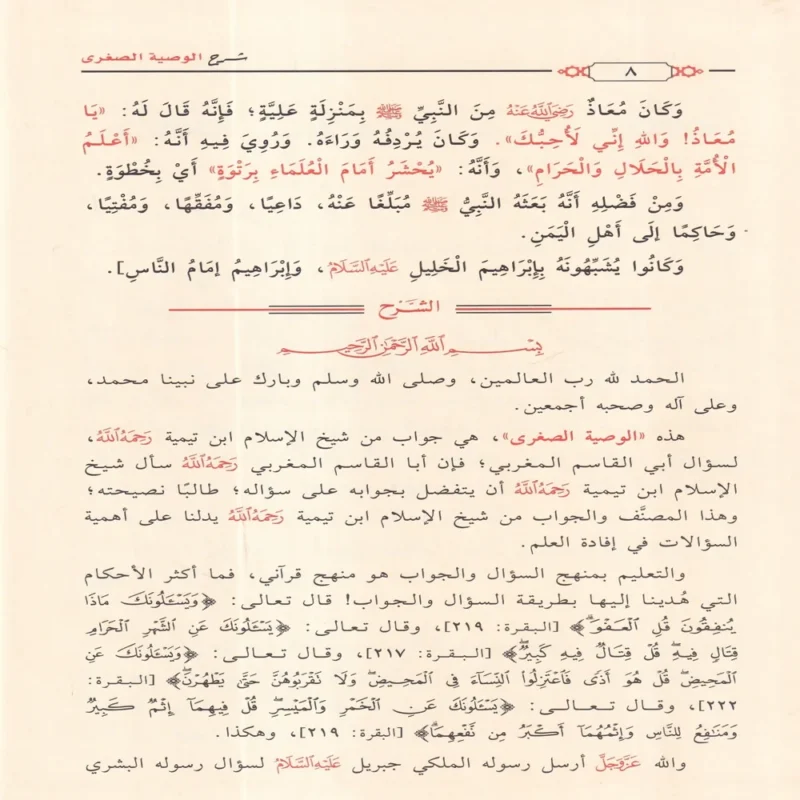 شرح الوصية الصغرى
٨
وَكَانَ مُعَاذٌ رَضِيَ اللَّهُ عَنْهُ مِنَ النَّبِيِّ ﷺ بِمَنْزِلَةٍ عَلِيَّةٍ؛ فَإِنَّهُ قَالَ لَهُ: «يَا
مُعَاذُ! وَاللهِ إِنِّي لَأُحِبُّكَ». وَكَانَ يُرْدِفُهُ وَرَاءَهُ. وَرُوِيَ فِيهِ أَنَّهُ: «أَعْلَمُ
الْأُمَّةِ بِالْحَلَالِ وَالْحَرَامِ»، وَأَنَّهُ: «يُحْشَرُ أَمَامَ الْعُلَمَاءِ بِرَتْوَةٍ» أَيْ بِخُطْوَةٍ.
وَمِنْ فَضْلِهِ أَنَّهُ بَعَثَهُ النَّبِيُّ ﷺ مُبَلِّغًا عَنْهُ، دَاعِيًا، وَمُفَقِّهًا، وَمُفْتِيًا،
وَحَاكِمًا إِلَى أَهْلِ الْيَمَنِ.
وَكَانُوا يُشَبِّهُونَهُ بِإِبْرَاهِيمَ الْخَلِيلِ عَلَيْهِ السَّلَامُ، وَإِبْرَاهِيمُ إِمَامُ النَّاسِ].
الشَّرْح
بِسْمِ اللَّهِ الرَّحْمَٰنِ الرَّحِيمِ
الحمد لله رب العالمين، وصلى الله وسلم وبارك على نبينا محمد،
وعلى آله وصحبه أجمعين.
هذه «الوصية الصغرى»، هي جواب من شيخ الإسلام ابن تيمية رَحِمَهُ اللَّهُ،
لسؤال أبي القاسم المغربي؛ فإن أبا القاسم المغربي رَحِمَهُ اللَّهُ سأل شيخ
الإسلام ابن تيمية رَحِمَهُ اللَّهُ أن يتفضل بجوابه على سؤاله؛ طالبًا نصيحته؛
وهذا المصنَّف والجواب من شيخ الإسلام ابن تيمية رَحِمَهُ اللَّهُ يدلنا على أهمية
السؤالات في إفادة العلم.
والتعليم بمنهج السؤال والجواب هو منهج قرآني، فما أكثر الأحكام
التي هُدينا إليها بطريقة السؤال والجواب! قال تعالى: ﴿وَيَسْـَٔلُونَكَ مَاذَا
يُنفِقُونَ قُلِ ٱلْعَفْوَ ۗ﴾ [البقرة: ٢١٩]، وقال تعالى: ﴿يَسْـَٔلُونَكَ عَنِ ٱلشَّهْرِ ٱلْحَرَامِ
قِتَالٍ فِيهِ ۖ قُلْ قِتَالٌ فِيهِ كَبِيرٌ ۖ﴾ [البقرة: ٢١٧]، وقال تعالى: ﴿وَيَسْـَٔلُونَكَ عَنِ
ٱلْمَحِيضِ ۖ قُلْ هُوَ أَذًى فَٱعْتَزِلُوا۟ ٱلنِّسَآءَ فِى ٱلْمَحِيضِ ۖ وَلَا تَقْرَبُوهُنَّ حَتَّىٰ يَطْهُرْنَ ۖ﴾ [البقرة:
٢٢٢]، وقال تعالى: ﴿يَسْـَٔلُونَكَ عَنِ ٱلْخَمْرِ وَٱلْمَيْسِرِ ۖ قُلْ فِيهِمَآ إِثْمٌ كَبِيرٌ
وَمَنَٰفِعُ لِلنَّاسِ وَإِثْمُهُمَآ أَكْبَرُ مِن نَّفْعِهِمَا ۗ﴾ [البقرة: ٢١٩]، وهكذا.
والله عَزَّوَجَلَّ أرسل رسوله الملكي جبريل عَلَيْهِ السَّلَامُ لسؤال رسوله البشري